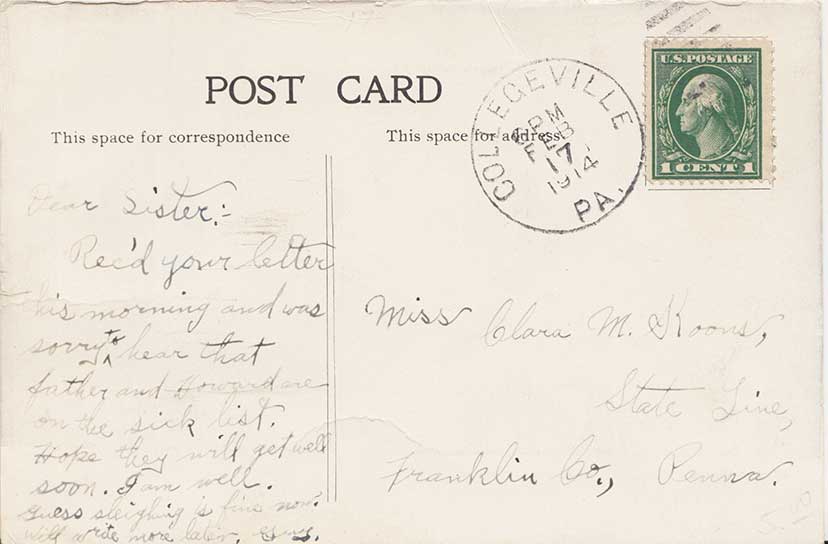 POST CARD
This space for correspondence
This space for address
COLLEGEVILLE
PM
FEB
17
1914
PA.
U.S. POSTAGE
1 CENT 1
Dear Sister:-
Rec'd your letter
this morning and was
sorry to hear that
father and Howard are
on the sick list.
Hope they will get well
soon. I am well.
Guess sleighing is fine now.
Will write more later,
Miss Clara M. Koons,
State Line,
Franklin Co., Penna.
5.00